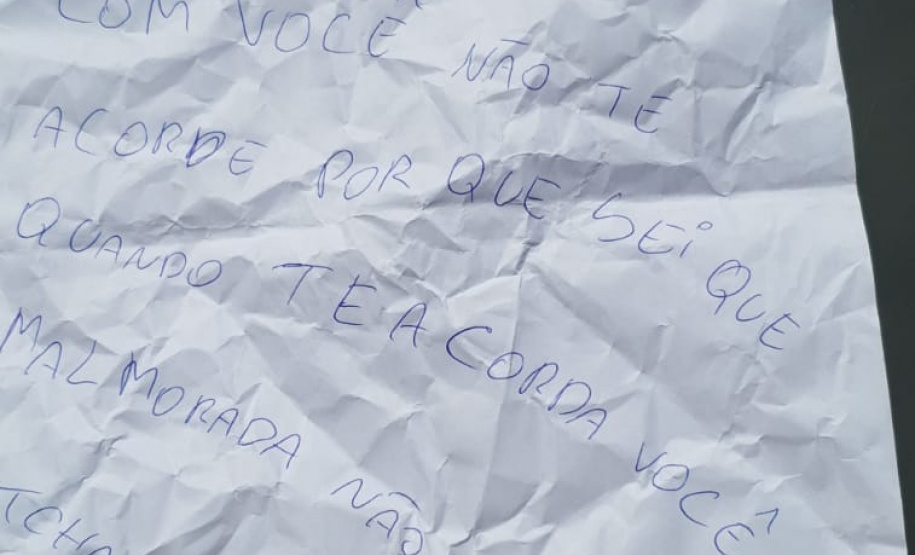 COM VOCÊ NÃO TE
ACORDE POR QUE SEI QUE
QUANDO TE ACORDA VOCÊ
MALMORADA NÃO